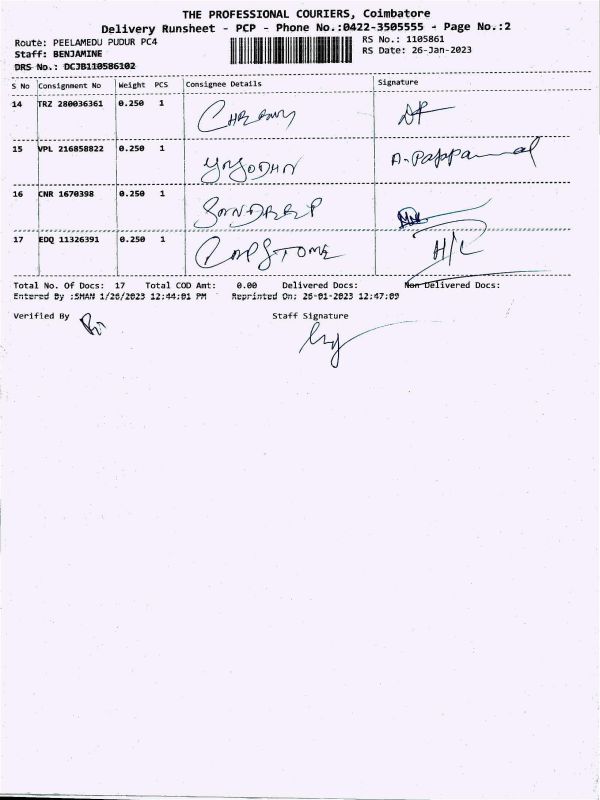 THE PROFESSIONAL COURIERS, Coimbatore
Delivery Runsheet - PCP - Phone No.:0422-3505555 - Page No.:2
Route: PEELAMEDU PUDUR PC4
RS No.: 1105861
Staff: BENJAMINE
RS Date: 26-Jan-2023
DRS No.: DCJB110586102
S No Consignment No Weight PCS Consignee Details Signature
14 TRZ 280036361 0.250 1
15 VPL 216858822 0.250 1 YOJODHN A.Pappammal
16 CNR 1670398 0.250 1
17 EDQ 11326391 0.250 1 CAPSTONE H/C
Total No. Of Docs: 17 Total COD Amt: 0.00 Delivered Docs: Non Delivered Docs:
Entered By :SMAN 1/26/2023 12:44:01 PM Reprinted On: 26-01-2023 12:47:09
Verified By Staff Signature